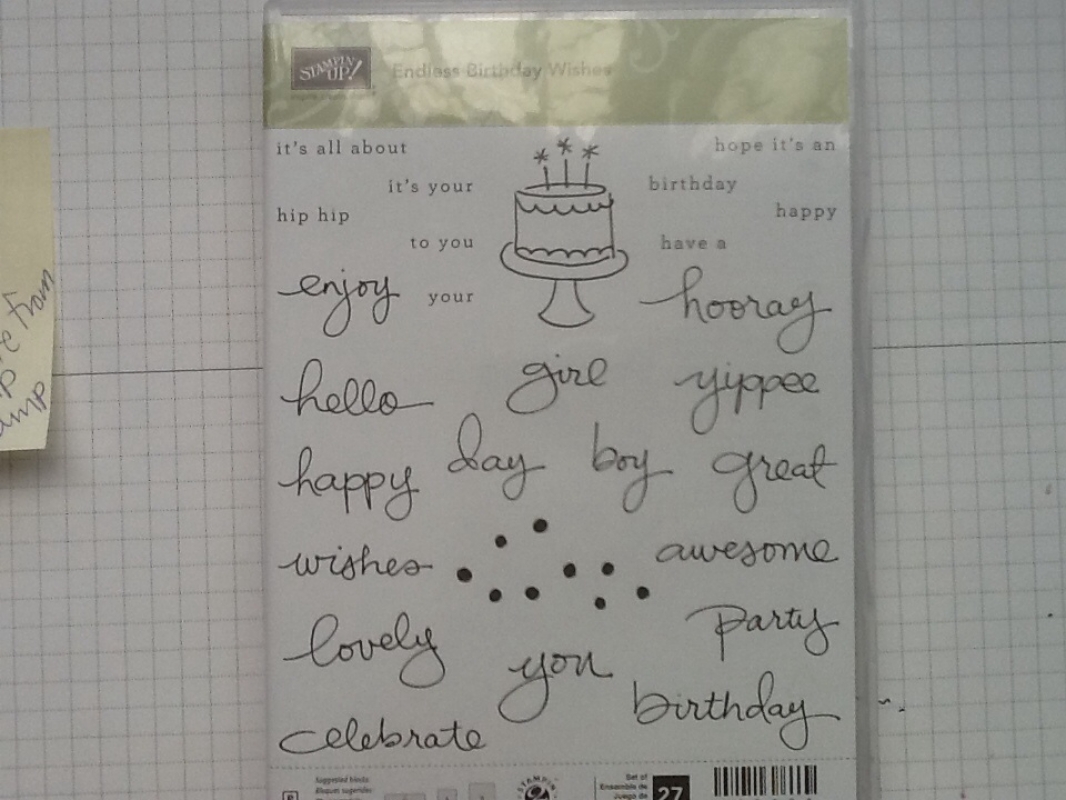 STAMPIN' UP!
Endless Birthday Wishes
it's all about
hope it's an
it's your
birthday
hip hip
happy
to you
have a
enjoy
your
hooray
hello
girl
yippee
happy
day
boy
great
wishes
awesome
lovely
you
party
birthday
celebrate
Suggested blocks
Bloques sugeridos
STAMPIN
Set of
Ensemble de
Juego de
27
from